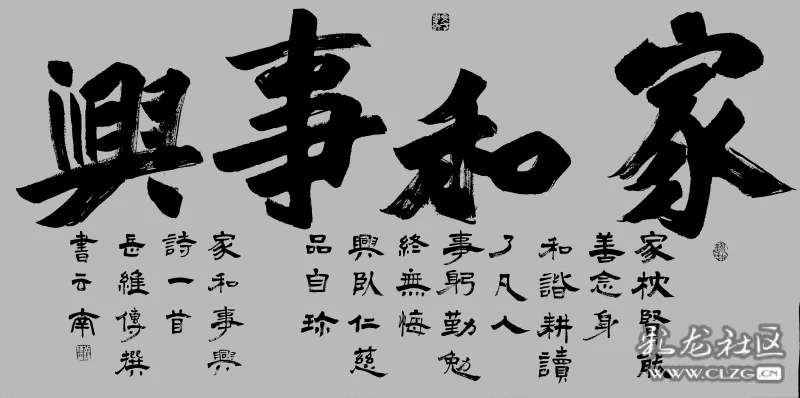 家和事興
家枕賢能
善念身
和諧耕讀
了凡人
事躬勤勉
終無悔
興臥仁慈
品自珍
家和事興
詩一首
岳維傳撰
書云南
彩龙社区
WWW.CLZG.CN